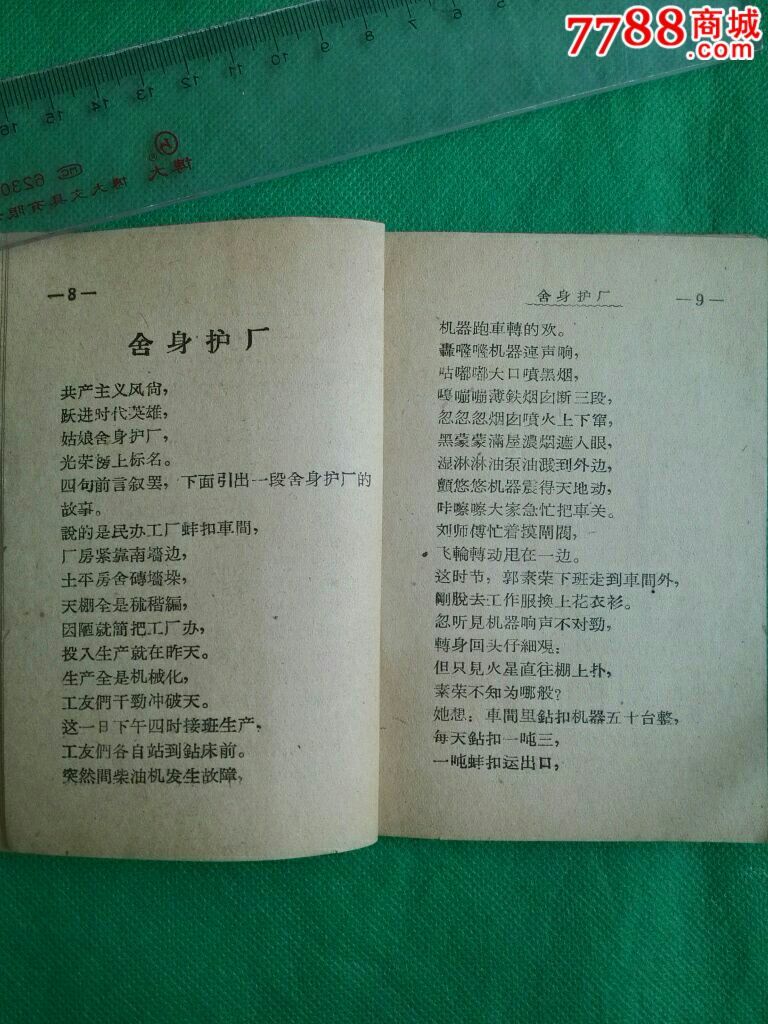 7788商城
.com
5 6 7 8 9 10 11 12 13 14 15 16
博大
博大文具有限
MC 6230
—8—
舍身护厂
共产主义风尚,
跃进时代英雄,
姑娘舍身护厂,
光荣榜上标名。
四句前言叙罢,下面引出一段舍身护厂的
故事。
說的是民办工厂蚌扣車間,
厂房紧靠南墻边,
土平房舍磚墻垛,
天棚全是秫稭編,
因陋就简把工厂办,
投入生产就在昨天。
生产全是机械化,
工友們干勁冲破天。
这一日下午四时接班生产,
工友們各自站到鉆床前。
突然間柴油机发生故障,
舍身护厂
—9—
机器跑車轉的欢。
轟隆隆机器連声响,
咕嘟嘟大口噴黑烟,
嘎嘣嘣薄鉄烟囱断三段,
忽忽忽烟囱噴火上下窜,
黑蒙蒙滿屋濃烟遮人眼,
湿淋淋油泵油濺到外边,
顫悠悠机器震得天地动,
咔嚓嚓大家急忙把車关。
刘师傅忙着摸閘閥,
飞輪轉动甩在一边。
这时节,郭素荣下班走到車間外,
剛脫去工作服換上花衣衫。
忽听見机器响声不对勁,
轉身回头仔細观:
但只見火星直往棚上扑,
素荣不知为哪般?
她想:車間里鉆扣机器五十台整,
每天鉆扣一吨三,
一吨蚌扣运出口,